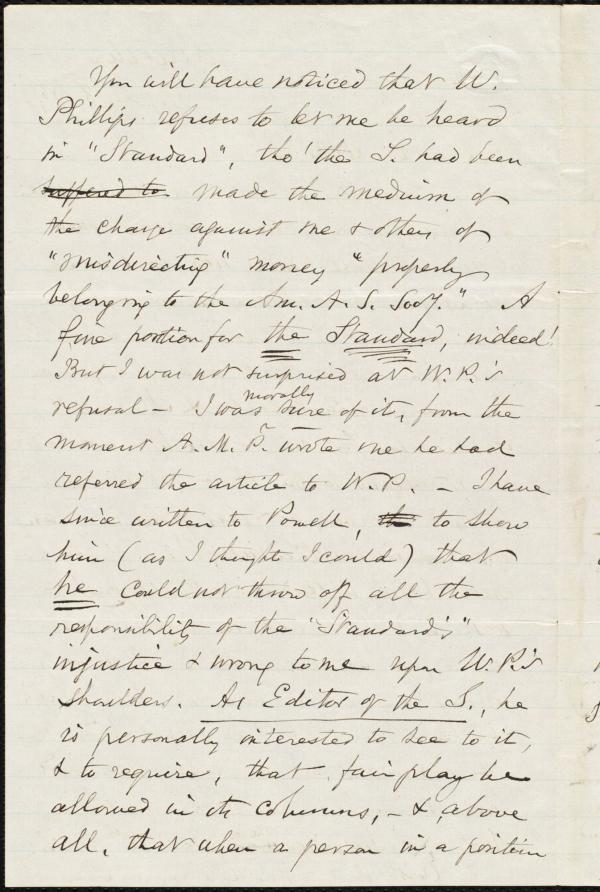 You will have noticed that W.
Phillips refuses to let me be heard
in "Standard", tho' the S. had been
suffered to made the medium of
the charge against me & others of
"misdirecting" money "properly
belonging to the Am. A. S. Socy." A
fine portion for the Standard, indeed!
But I was not surprised at W.P.'s
refusal – I was morally sure of it, from the
moment A. M. P. wrote me he had
referred the article to W.P. – I have
since written to Powell, to show
him (as I thought I could) that
he could not throw off all the
responsibility of the "Standard's"
injustice & wrong to me upon W.P.'s
shoulders. As Editor of the S., he
is personally interested to see to it,
& to require, that fair play be
allowed in its columns, – &, above
all, that when a person in a position